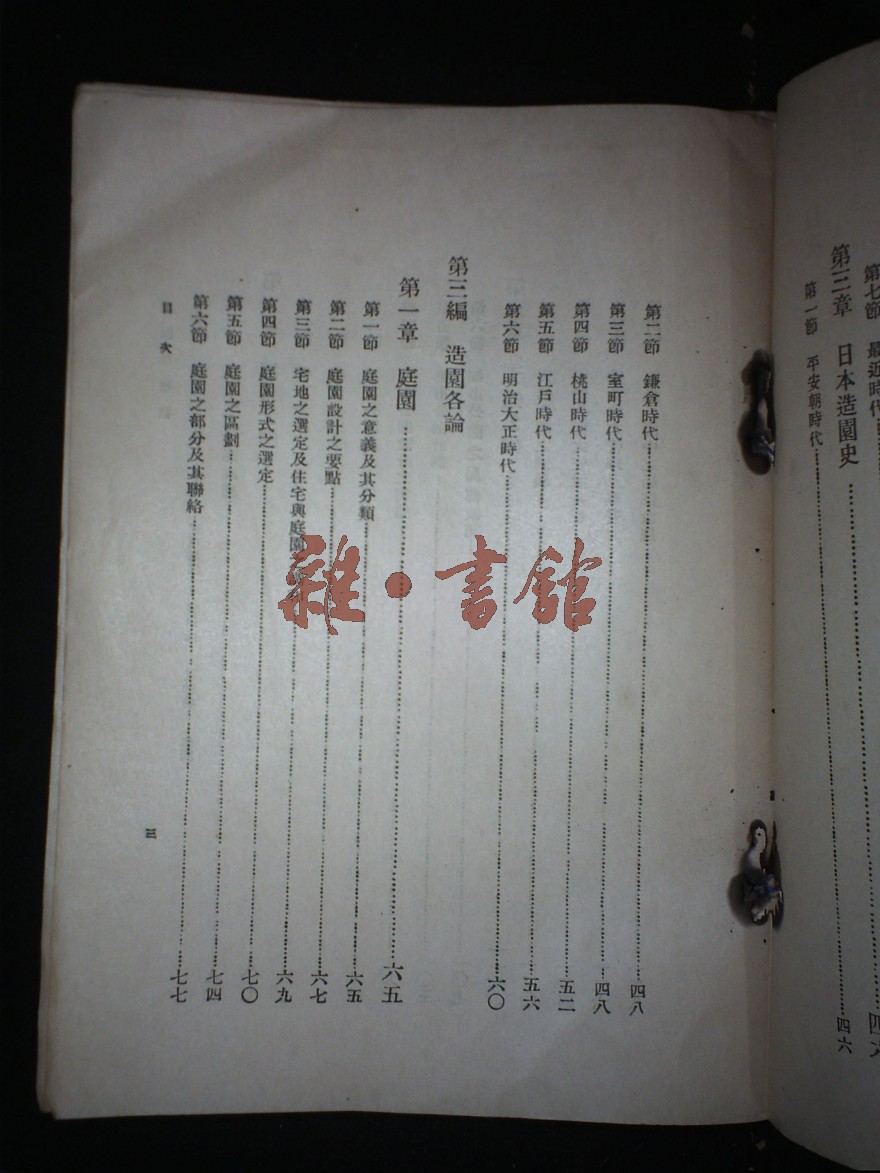 第七節 最近時代
第三章 日本造園史 四六
第一節 平安朝時代 四六
第二節 鎌倉時代 四八
第三節 室町時代 四八
第四節 桃山時代 五二
第五節 江戶時代 五六
第六節 明治大正時代 六〇
第三編 造園各論
第一章 庭園 六五
第一節 庭園之意義及其分類 六五
第二節 庭園設計之要點 六七
第三節 宅地之選定及住宅與庭園 六九
第四節 庭園形式之選定 七〇
第五節 庭園之區劃 七四
第六節 庭園之部分及其聯絡 七七
目次
三
雜·書館